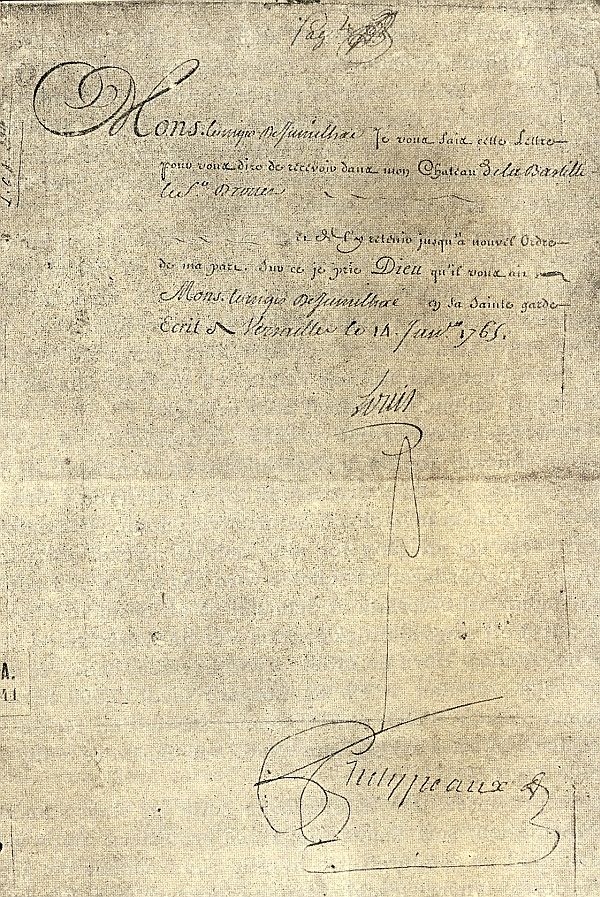 Mons. le Comte De Jumilhac Je vous fais cette Lettre
pour vous dire de recevoir dans mon Chateau de la Bastille
le Sr. Drouet
et de l'y retenir jusqu'à nouvel Ordre
de ma part. Sur ce je prie Dieu qu'il vous ait
Mons. De Jumilhac en sa Sainte garde
Ecrit à Versailles le 14. Janv. 1765.
Louis
Phelypeaux
A.
11